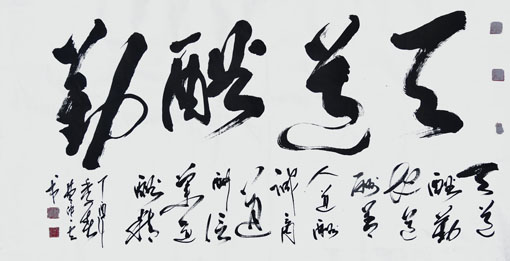 天道酬勤
天道
酬勤
地道
酬善
人道酬
诚商
道
酬信
業道
酬精
丁酉